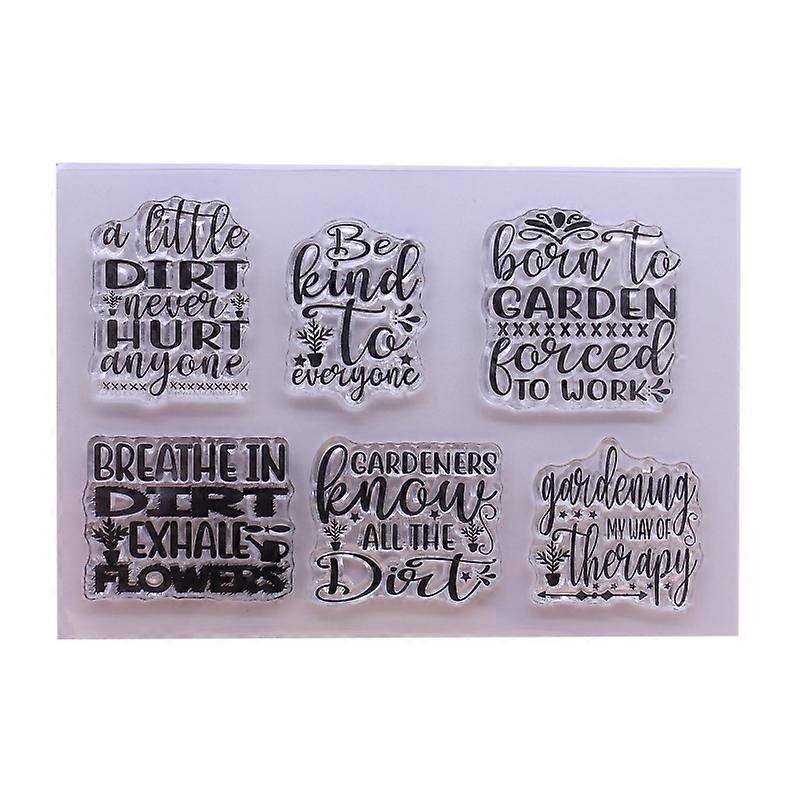 a little
DIRT
never
HURT
anyone
Be
kind
to
everyone
born to
GARDEN
forced
TO WORK
BREATHE IN
DIRT
EXHALE
FLOWERS
GARDENERS
know
ALL THE
Dirt
gardening
MY WAY OF
therapy